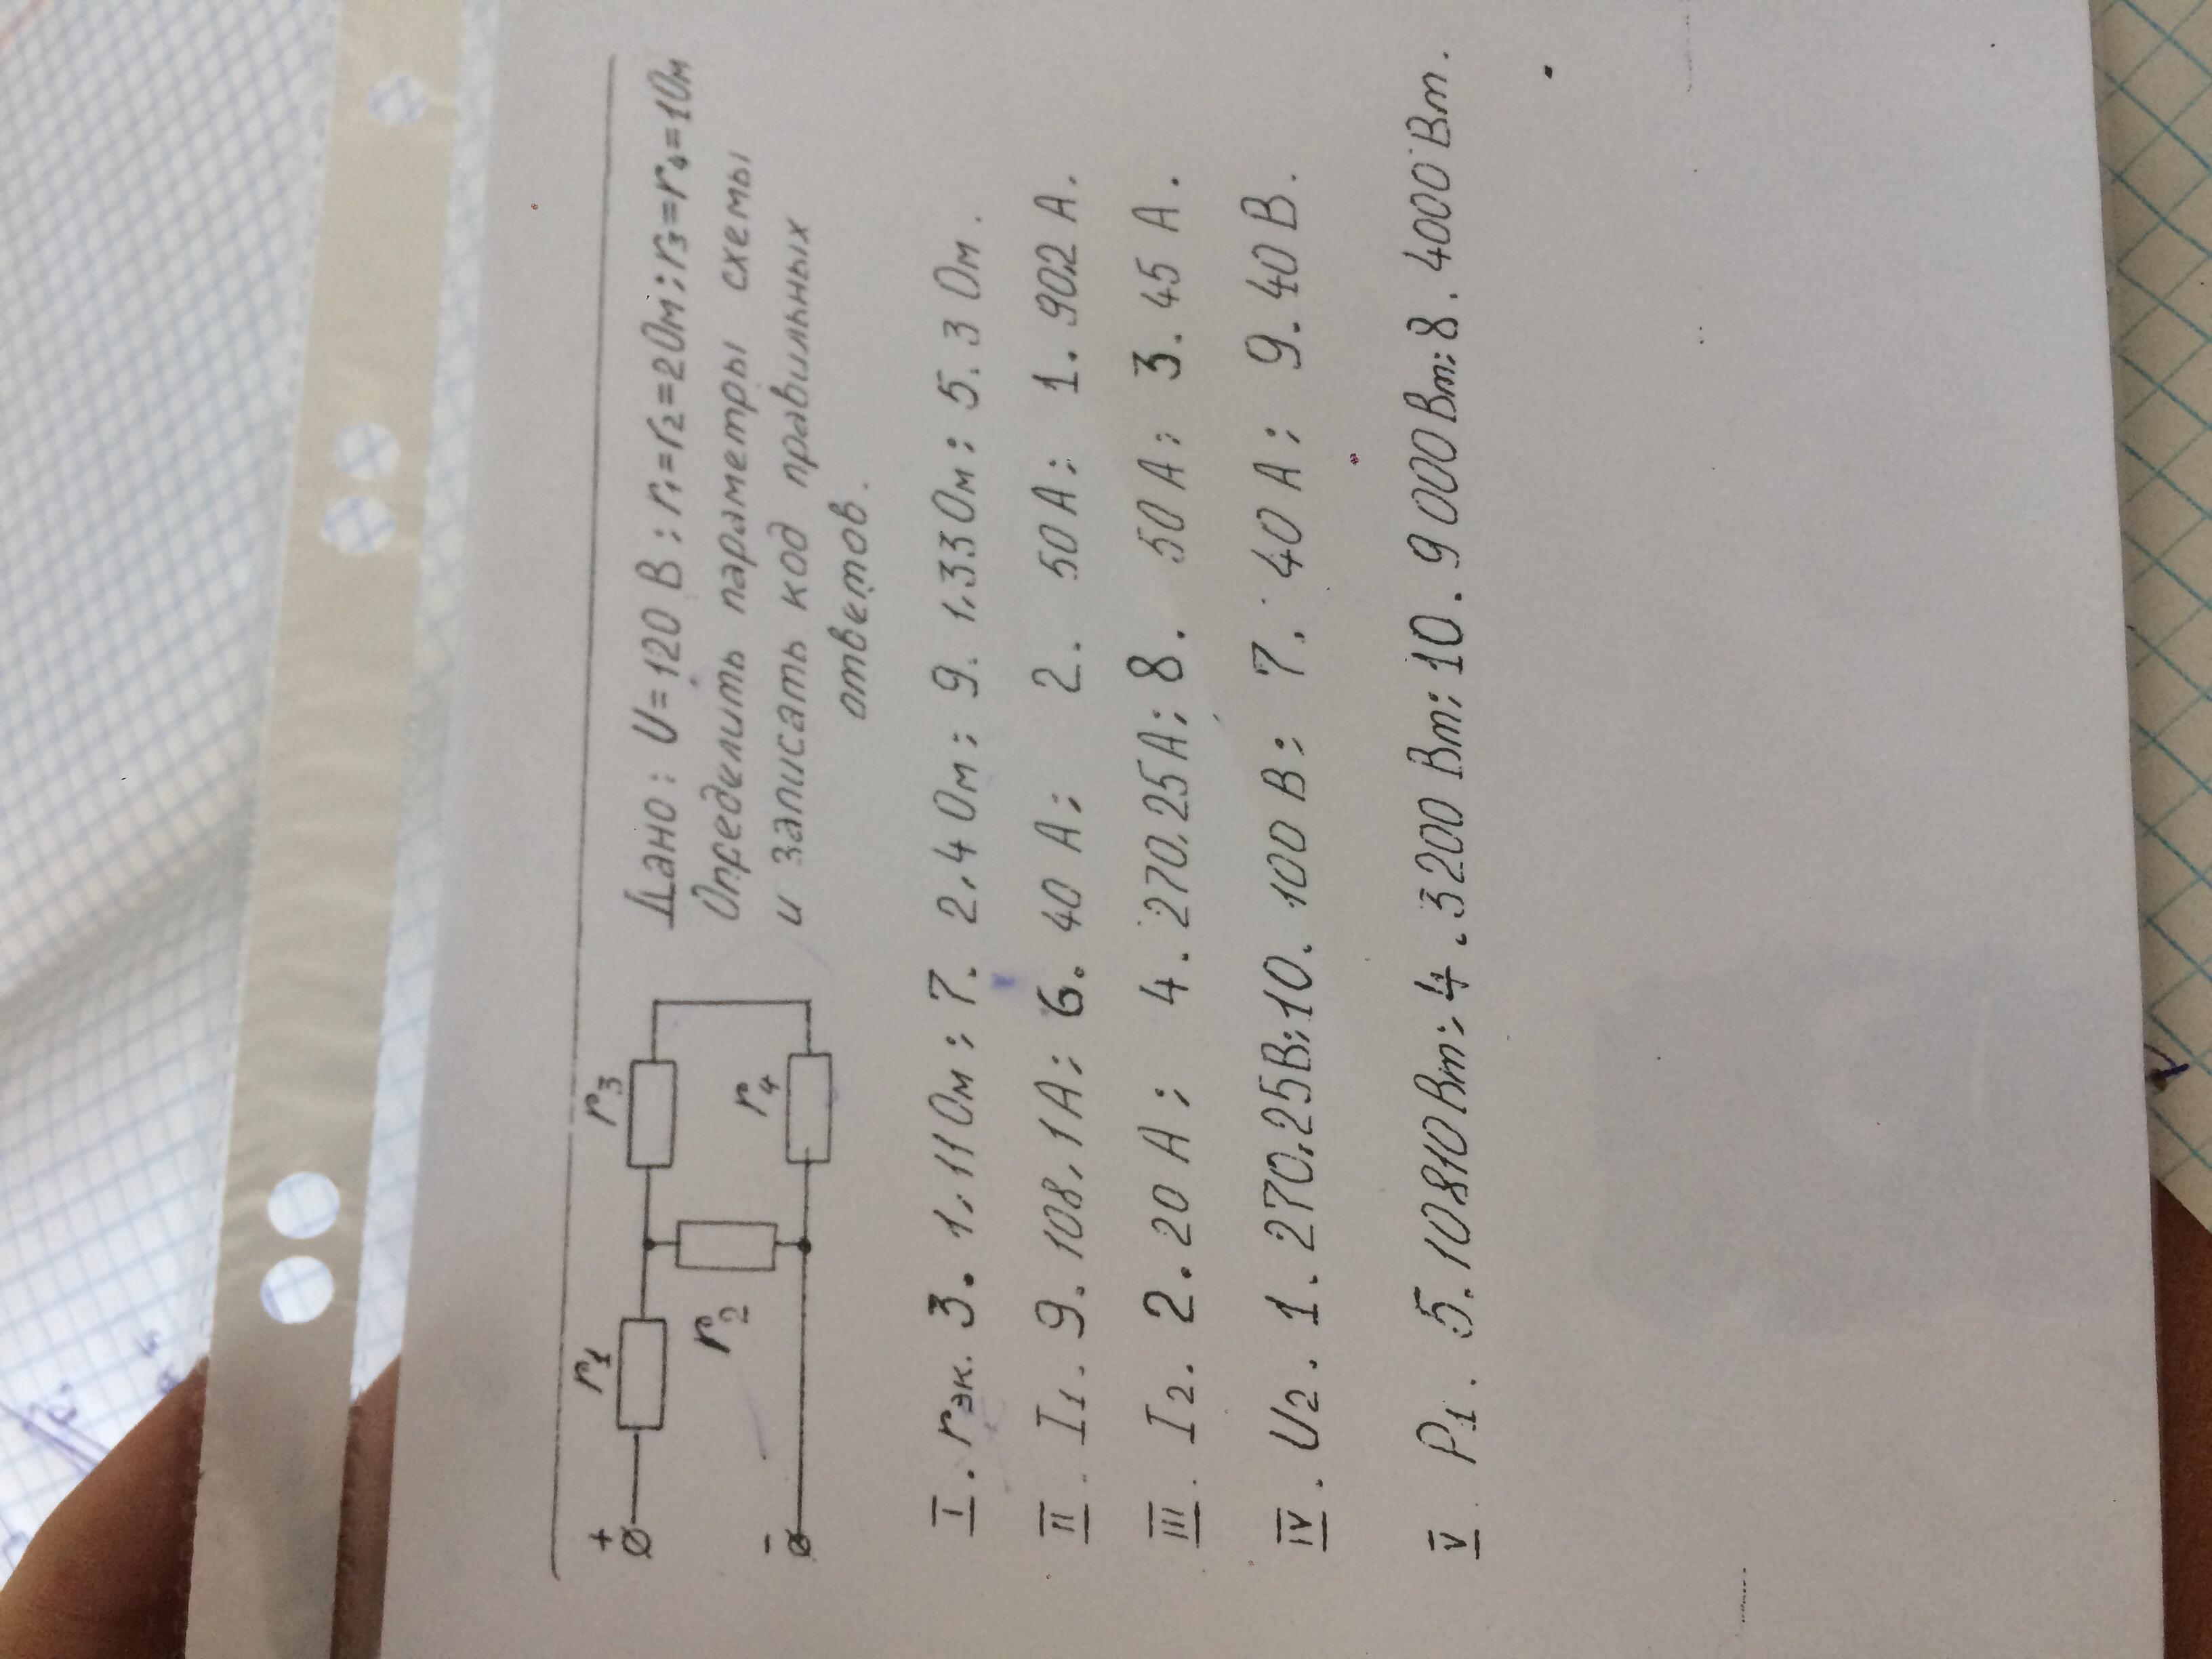 Дано: U=120 В; r₁=r₂=2Ом; r₃=r₄=1Ом
Определить параметры схемы
и записать код правильных
ответов.
+
r₁
r₃
r₂
r₄
-
I. rэк. 3. 1,11Ом; 7. 2,4Ом; 9. 1,33Ом; 5. 3 Ом.
II. I₁. 9. 108,1А; 6. 40 А; 2. 50А; 1. 90,2 А.
III. I₂. 2. 20 А; 4. 270,25А; 8. 50А; 3. 45 А.
IV. U₂. 1. 270,25В; 10. 100 В; 7. 40 А; 9. 40 В.
V. P₁. 5. 10810Вт; 4. 3200 Вт; 10. 9000Вт; 8. 4000 Вт.